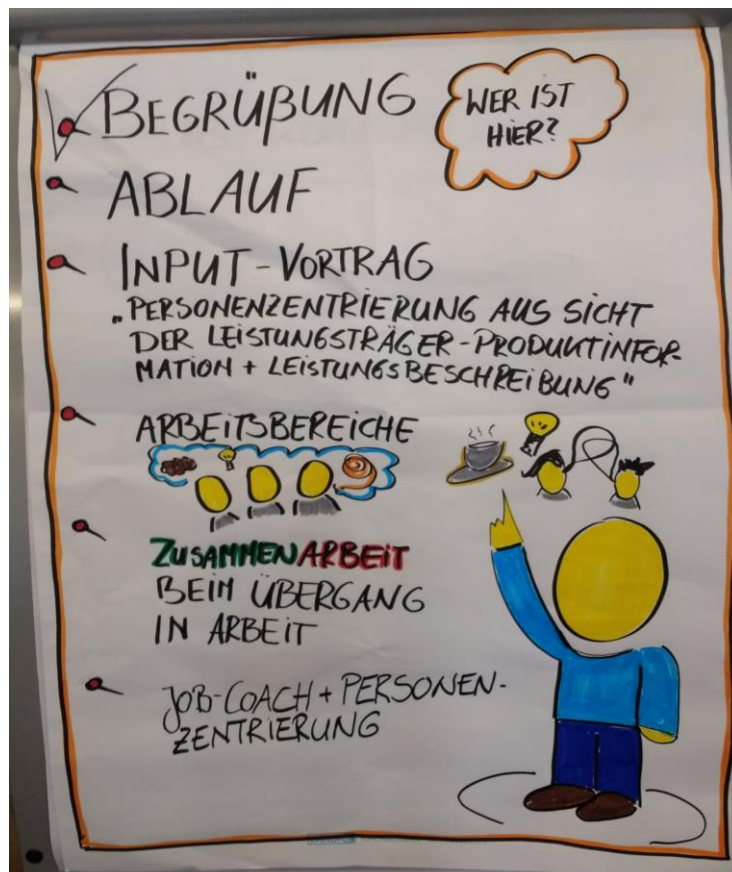 BEGRÜßUNG
WER IST
HIER?
ABLAUF
INPUT-VORTRAG
„PERSONENZENTRIERUNG AUS SICHT
DER LEISTUNGSTRÄGER-PRODUKTINFOR-
MATION + LEISTUNGSBESCHREIBUNG"
ARBEITSBEREICHE
ZUSAMMENARBEIT
BEIM ÜBERGANG
IN ARBEIT
JOB-COACH + PERSONEN-
ZENTRIERUNG